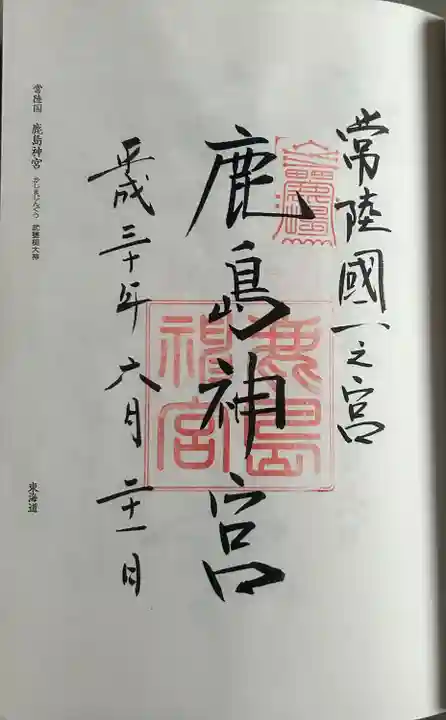 常陸國一之宮
鹿島神宮
鹿島神宮
平成三十年六月二十一日
常陸国 鹿島神宮 かしまじんぐう 武甕槌大神
東海道